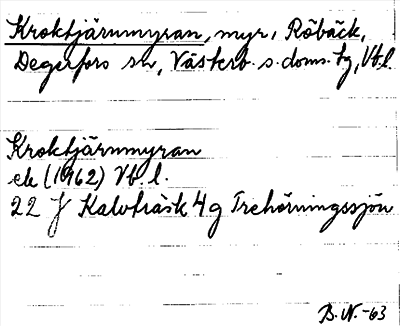 Kroktjärnmyran, myr, Röbäck,
Degerfors sn, Västerb. s. doms. tg, Vb. l.
Kroktjärnmyran
ek (1962) Vb l.
22 J Kalvträsk 4 g Trehörningssjön
B. N. -63